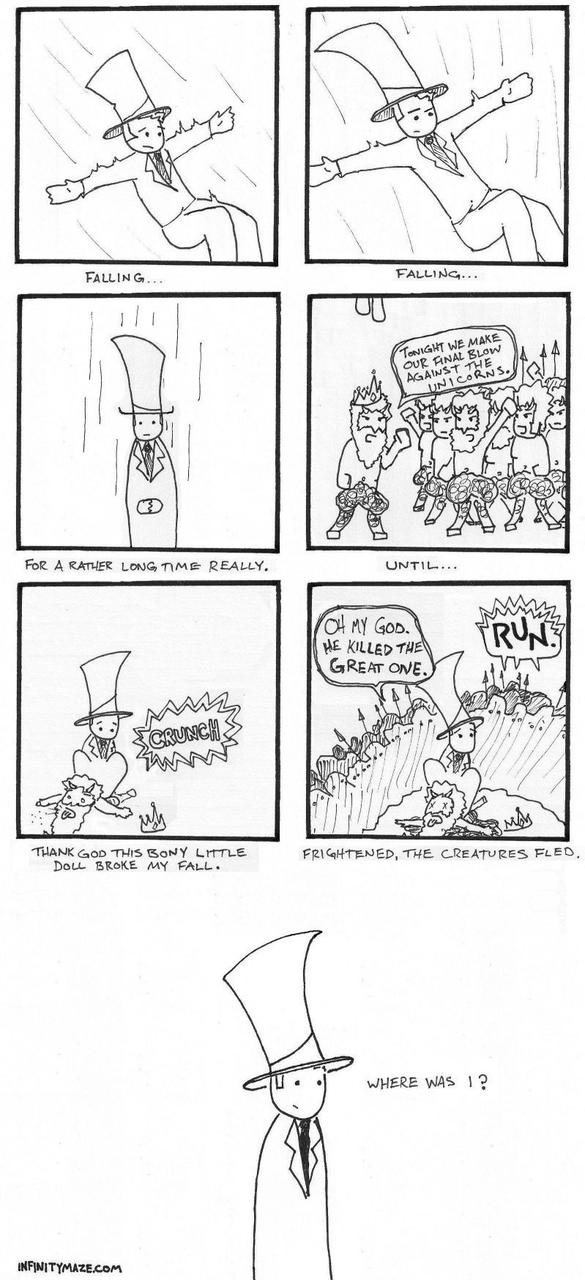 FALLING...
FALLING...
FOR A RATHER LONG TIME REALLY.
TONIGHT WE MAKE
OUR FINAL BLOW
AGAINST THE
UNICORNS.
UNTIL...
CRUNCH
THANK GOD THIS BONY LITTLE
DOLL BROKE MY FALL.
OH MY GOD.
HE KILLED THE
GREAT ONE.
RUN.
FRIGHTENED, THE CREATURES FLED.
WHERE WAS I?
INFINITYMAZE.COM